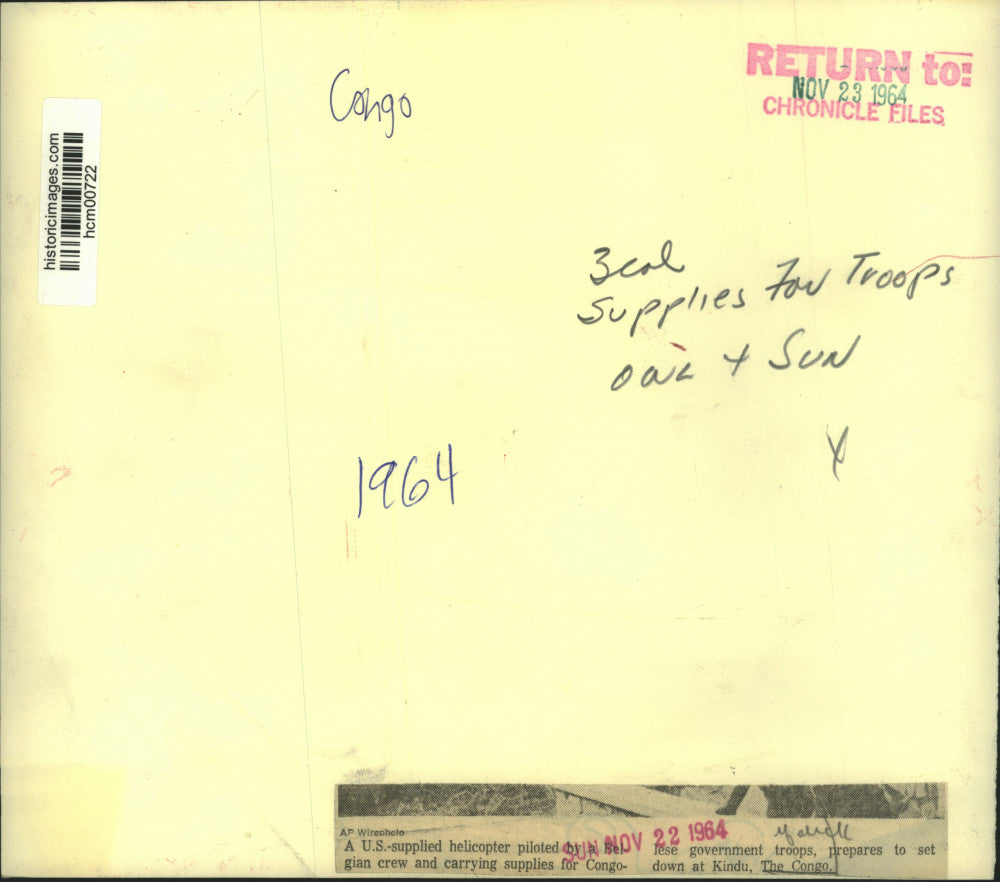 Congo
RETURN to:
NOV 23 1964
CHRONICLE FILES
historicimages.com
hcm00722
3 col
Supplies For Troops
+ Sun
X
1964
AP Wirephoto
SUN NOV 22 1964
A U.S.-supplied helicopter piloted by a Bel-
gian crew and carrying supplies for Congo-
lese government troops, prepares to set
down at Kindu, The Congo.